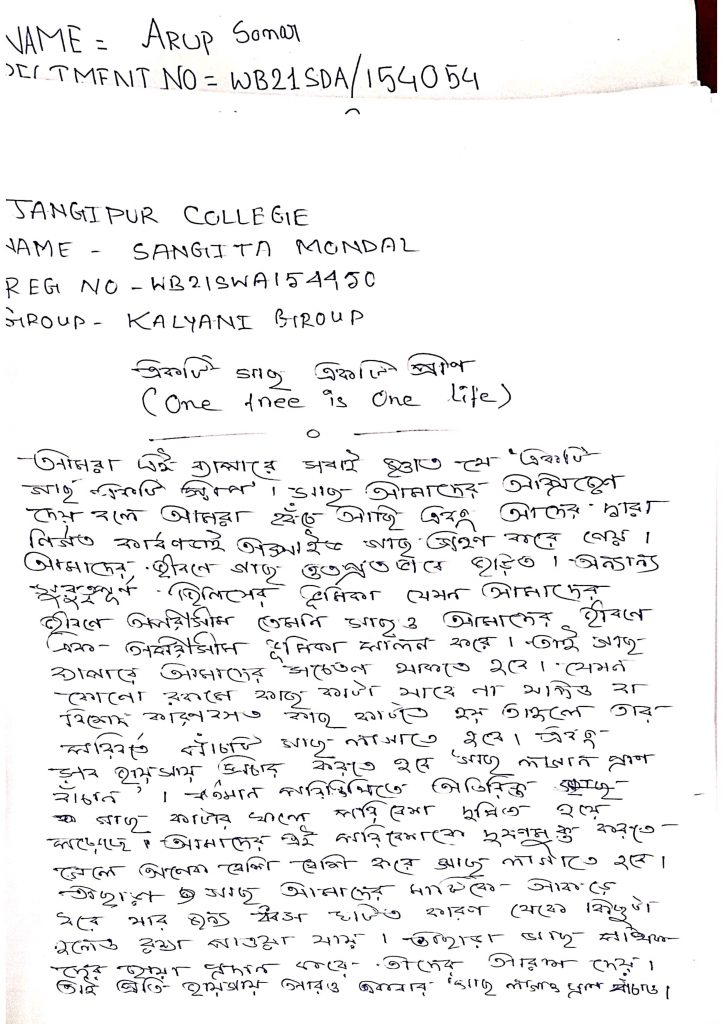 NAME = ARUP Sonar
NO = WB21SDA/154054
JANGIPUR COLLEGIE
NAME - SANGITA MONDAL
REG NO - WB21SWA154450
GROUP - KALYANI GROUP
একটি গাছ একটি প্রাণ
(One tree is One life)
আমরা এই ব্যাপারে সবাই জ্ঞাত যে 'একটি
গাছ একটি প্রাণ'। গাছ আমাদের অক্সিজেন
দেয় বলে আমরা বেঁচে আছি এবং আমাদের দ্বারা
নির্গত কার্বনডাই অক্সাইড গাছ গ্রহণ করে নেয়।
আমাদের জীবনে গাছ ওতপ্রোত ভাবে জড়িত। অন্যান্য
গুরুত্বপূর্ণ জিনিসের ভূমিকা যেমন আমাদের
জীবনে অপরীসীম তেমনি গাছও আমাদের জীবনে
এক অপরীসীম ভূমিকা পালন করে। তাই গাছ
ব্যাপারে আমাদের সচেতন থাকতে হবে। যেমন
কোনো রকমে গাছ কাটা যাবে না যদিও বা
বিশেষ কারণবসত গাছ কাটতে হয় তাহলে তার
পরিবর্তে পাঁচটি গাছ লাগাতে হবে। এবং
সব জায়গায় প্রচার করতে হবে 'গাছ লাগান প্রাণ
বাঁচান'। বর্তমান পরিস্থিতিতে অতিরিক্ত
গাছ কাটার ফলে পরিবেশ দূষিত হয়ে
পড়েছে। আমাদের এই পরিবেশকে দূষণমুক্ত করতে
গেলে অনেক বেশি বেশি করে গাছ লাগাতে হবে।
তাছাড়া গাছ আমাদের মাটিকে আকড়ে
ধরে যার জন্য ধ্বস ঘটিত কারণ থেকে কিছুটা
হলেও রক্ষা পাওয়া যায়। তাছাড়া গাছ
ছায়া প্রদান করে তাদের আরাম দেয়।
তাই প্রতি জায়গায় আরও একবার 'গাছ লাগাও প্রাণ বাঁচাও।